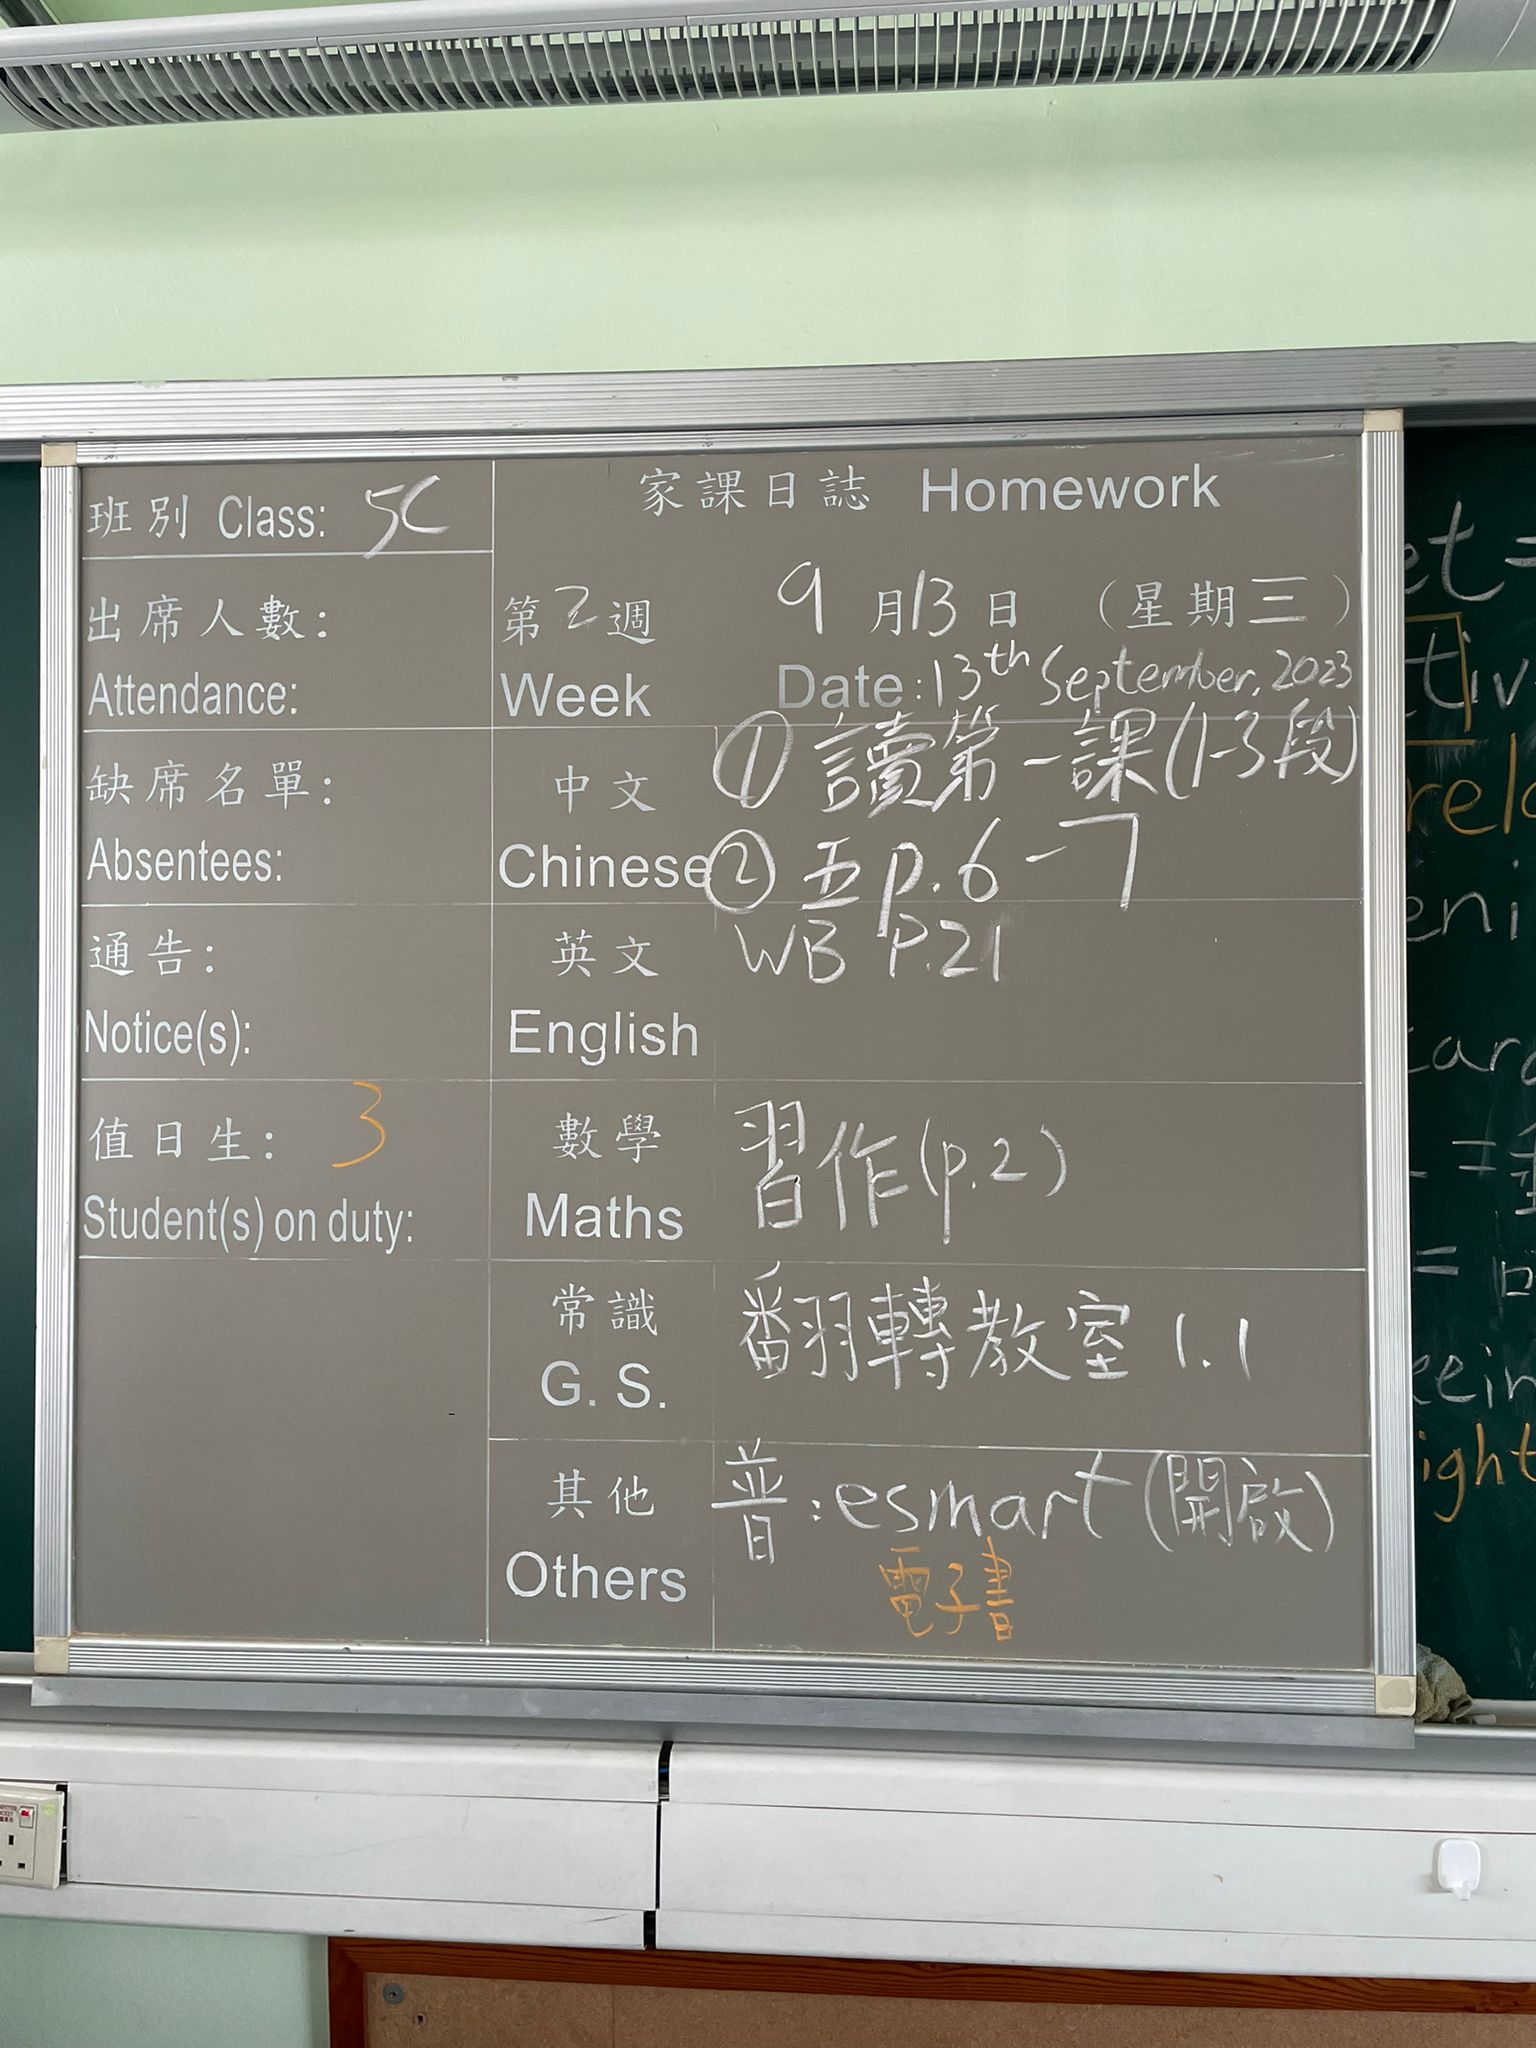 班別 Class: 5C
出席人數:
Attendance:
缺席名單:
Absentees:
通告:
Notice(s):
值日生: 3
Student(s) on duty:
家課日誌 Homework
第2週 9月13日 (星期三)
Week Date: 13th September, 2023
中文 ① 讀第一課(1-3段)
Chinese ② 五 p.6-7
英文 WB P.21
English
數學 習作(p.2)
Maths
常識 翻轉教室 1.1
G. S.
其他 普: esmart (開啟)
Others 電子書
et =
rel
eni